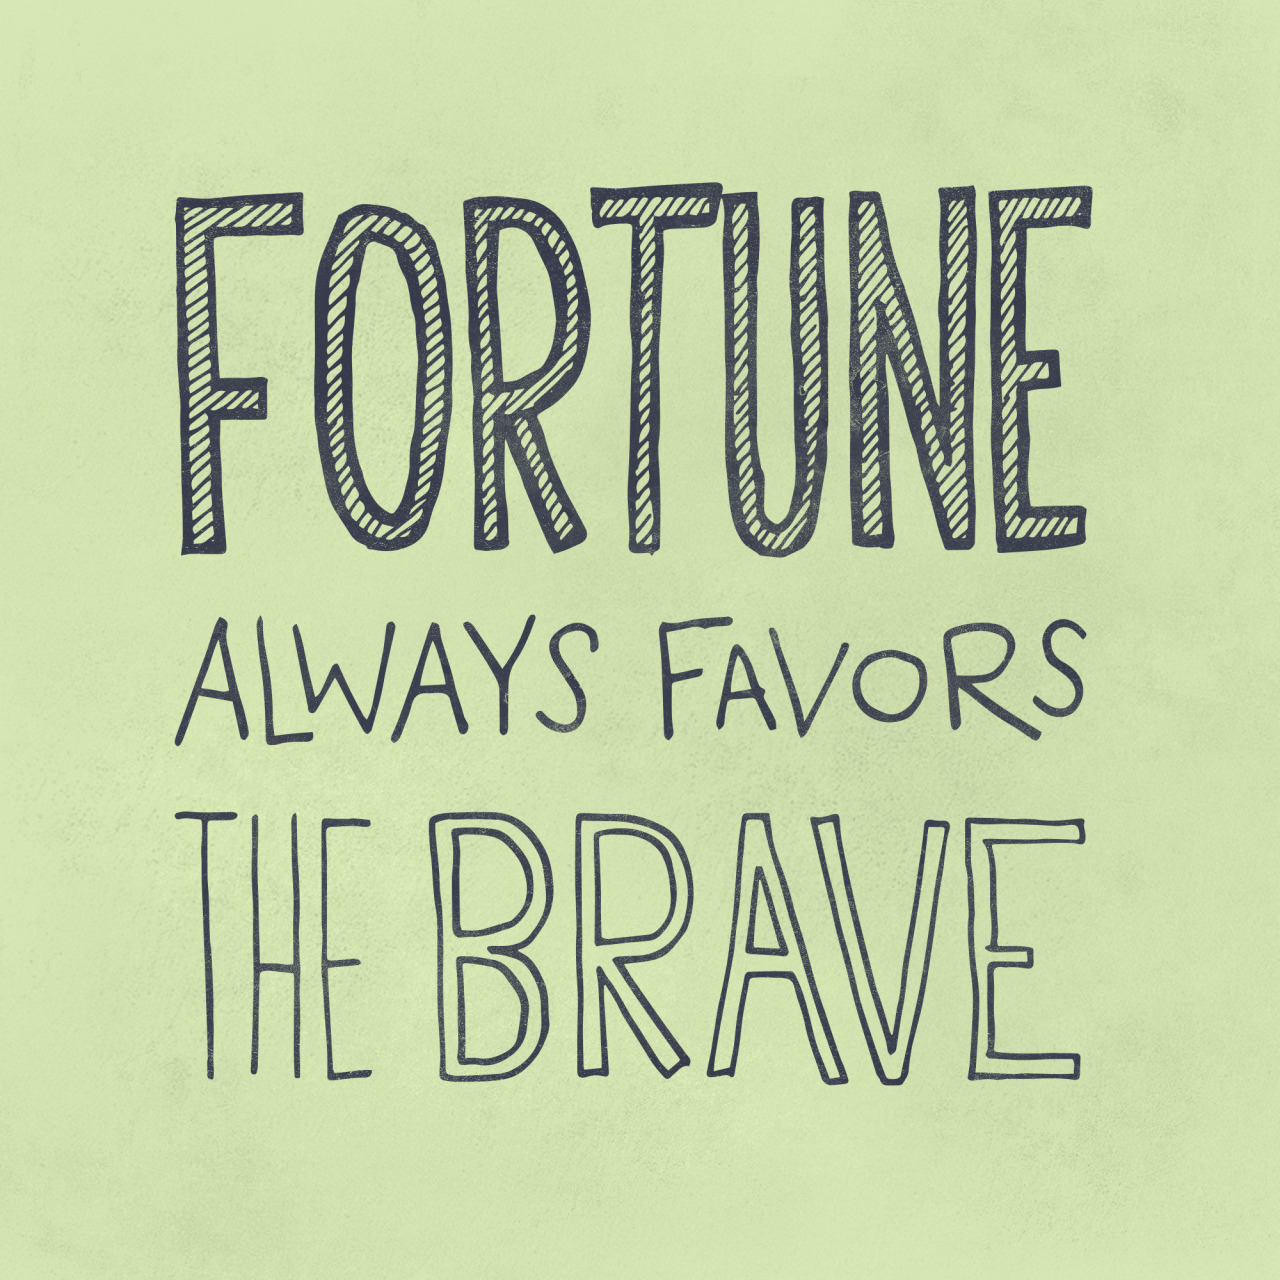 FORTUNE
ALWAYS FAVORS
THE BRAVE